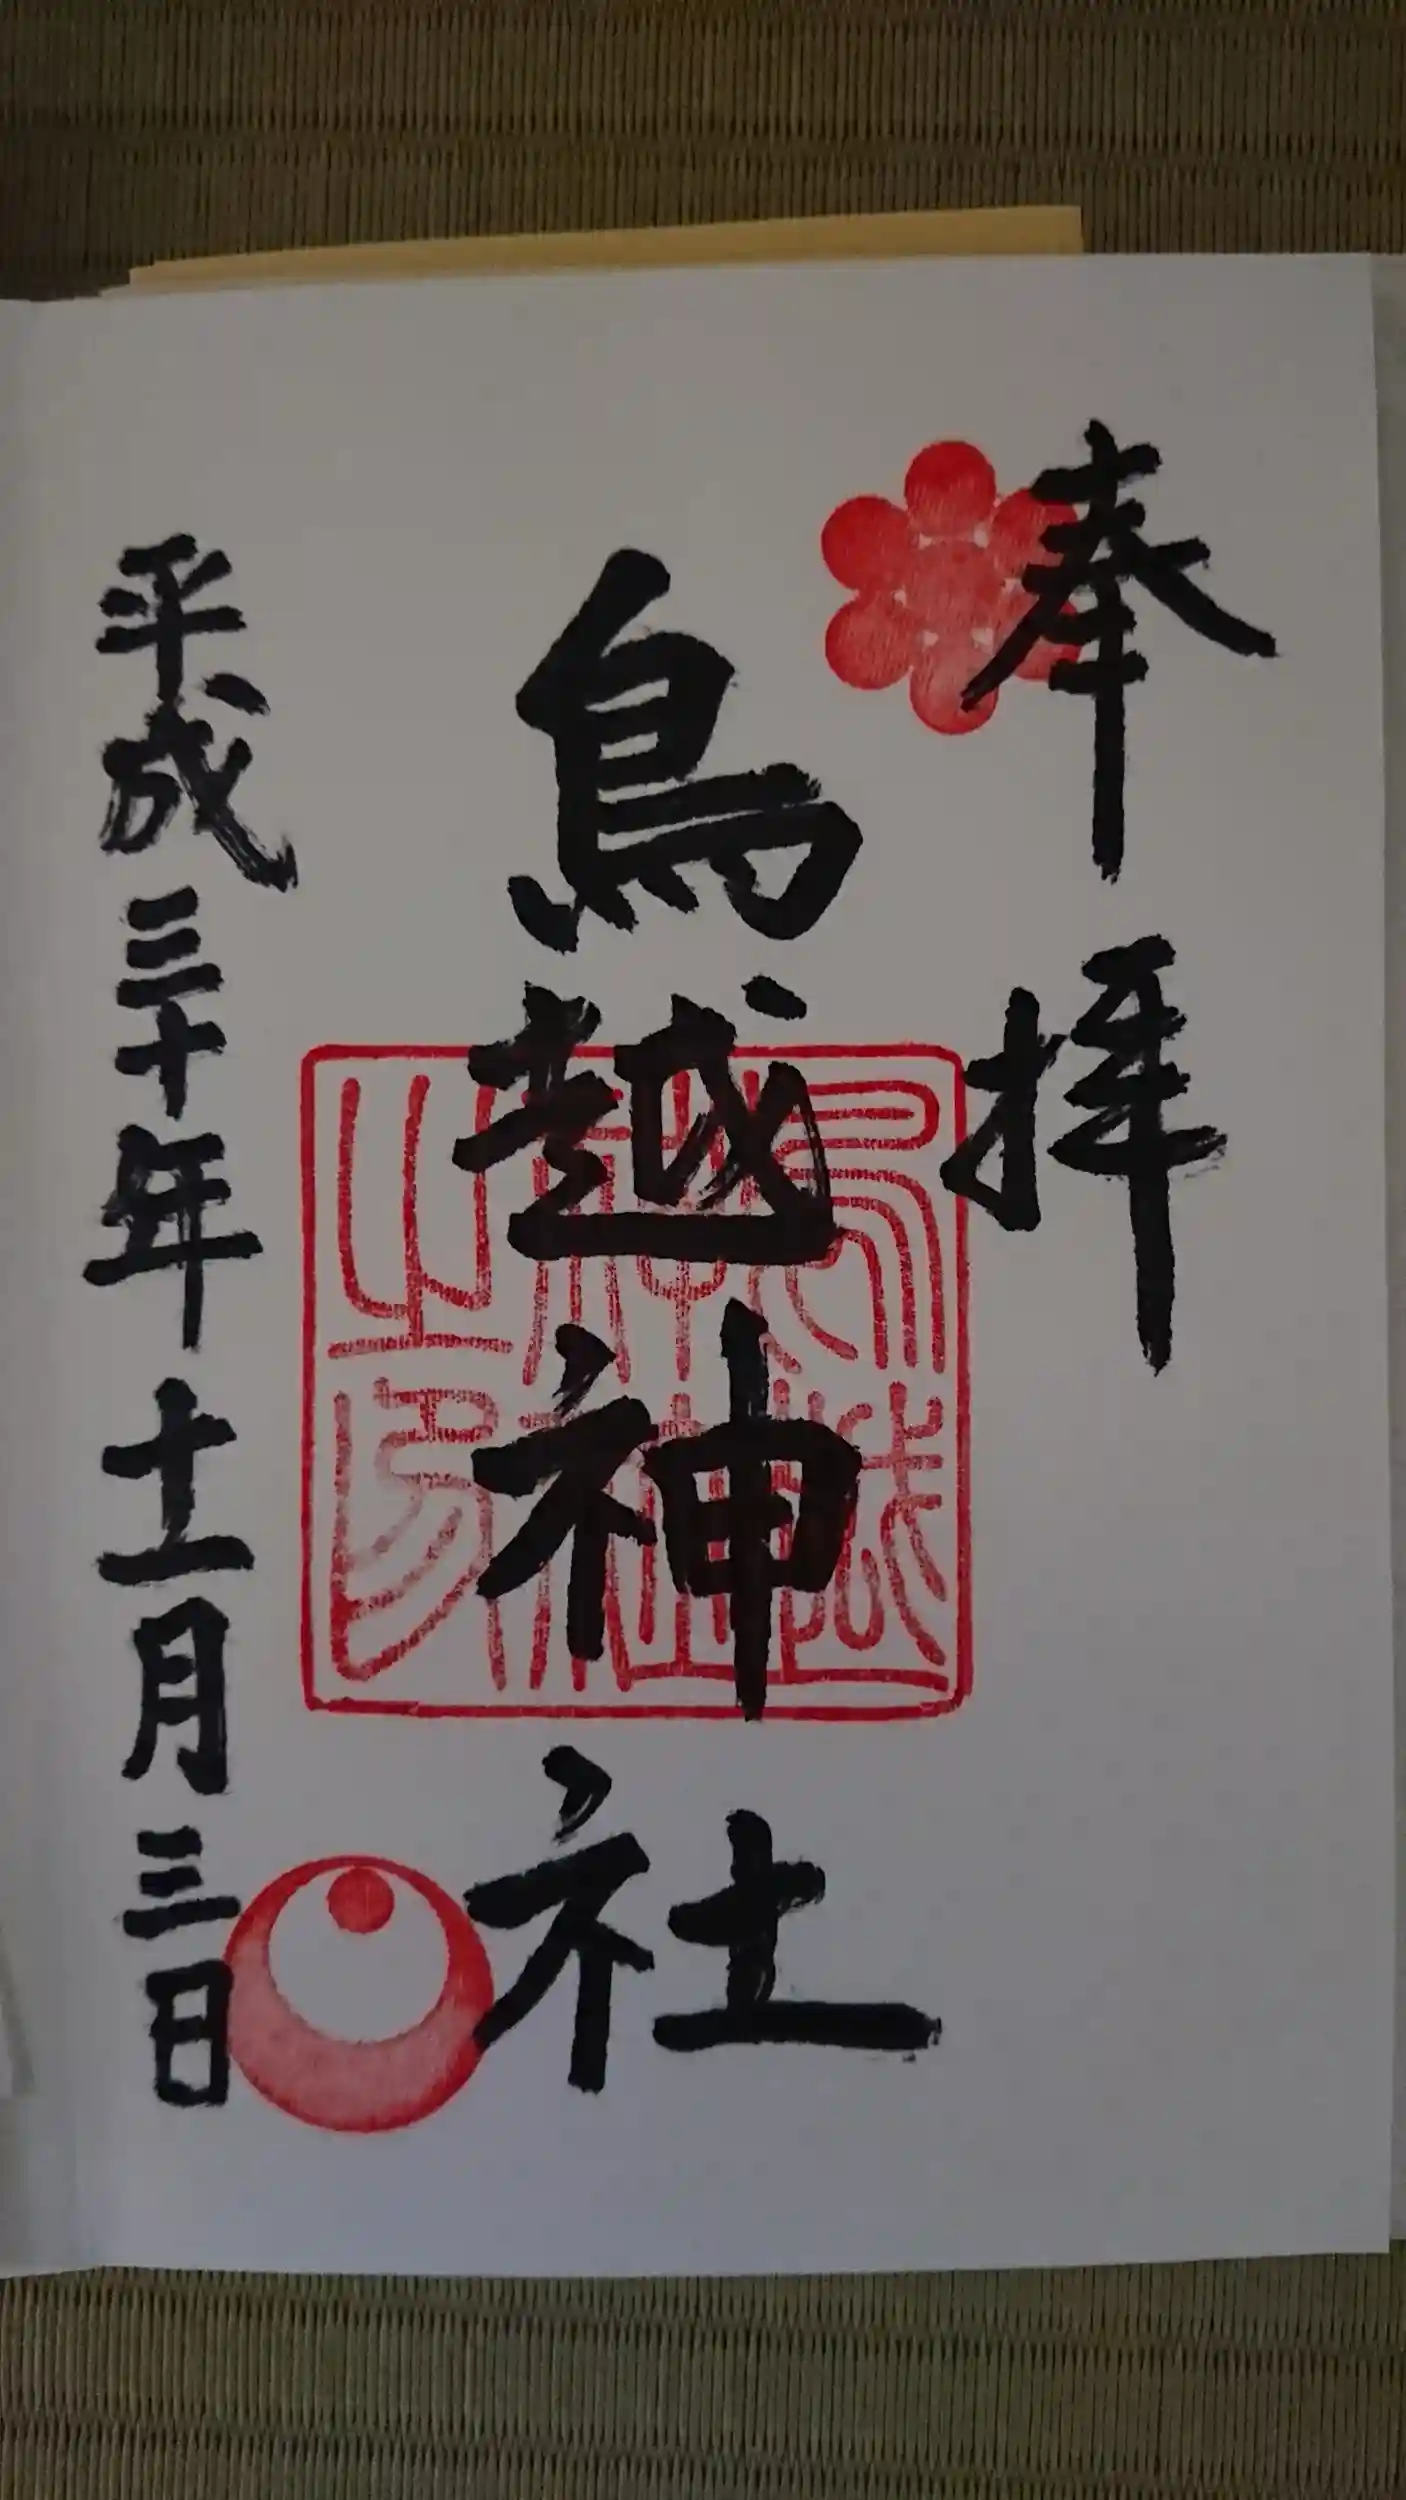 奉拝
鳥越神社
平成三十年十一月三日
鳥越神社之印